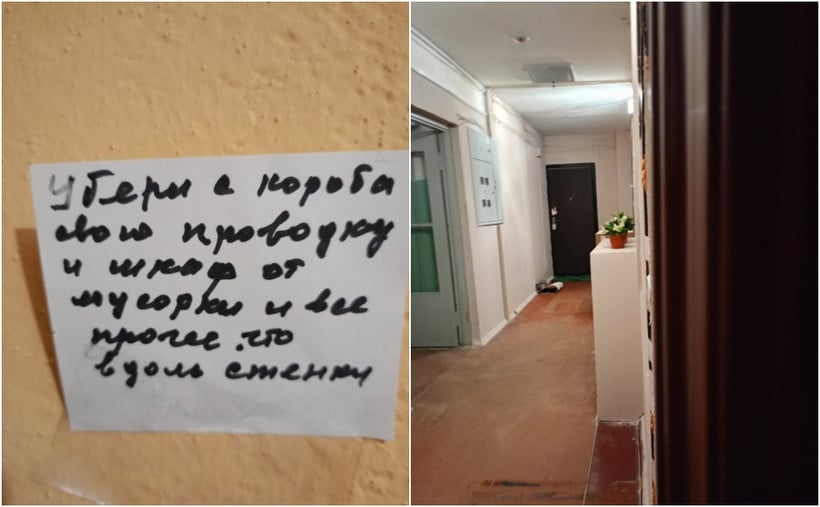 Убери с короба
свою проводку
и шкаф от
мусорки и все
прочее что
вдоль стенки